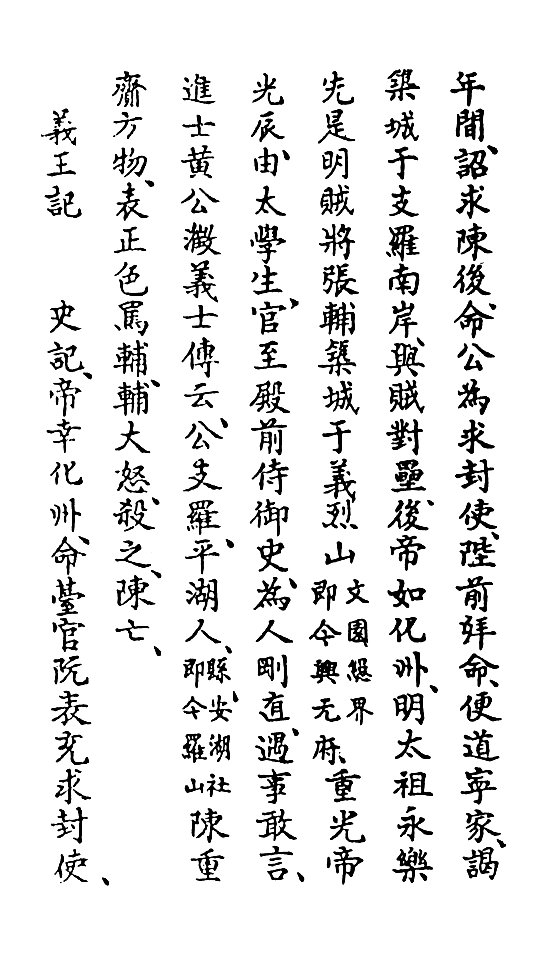 年間、詔求陳後、命公為求封使、陛前拜命、便道寧家、謁
築城于支羅南岸、與賊對壘、後帝如化州、明太祖永樂
先是明賊將張輔築城于義烈山文園總界即今興元府、重光帝
光辰、由太學生、官至殿前侍御史、為人剛直、遇事敢言、
進士黄公澂義士傳云、公支羅平湖人、縣、安湖社即今羅山陳重
齋方物、表正色罵輔、輔大怒、殺之、陳亡、
義王記　史記、帝幸化州、命臺官阮表充求封使、